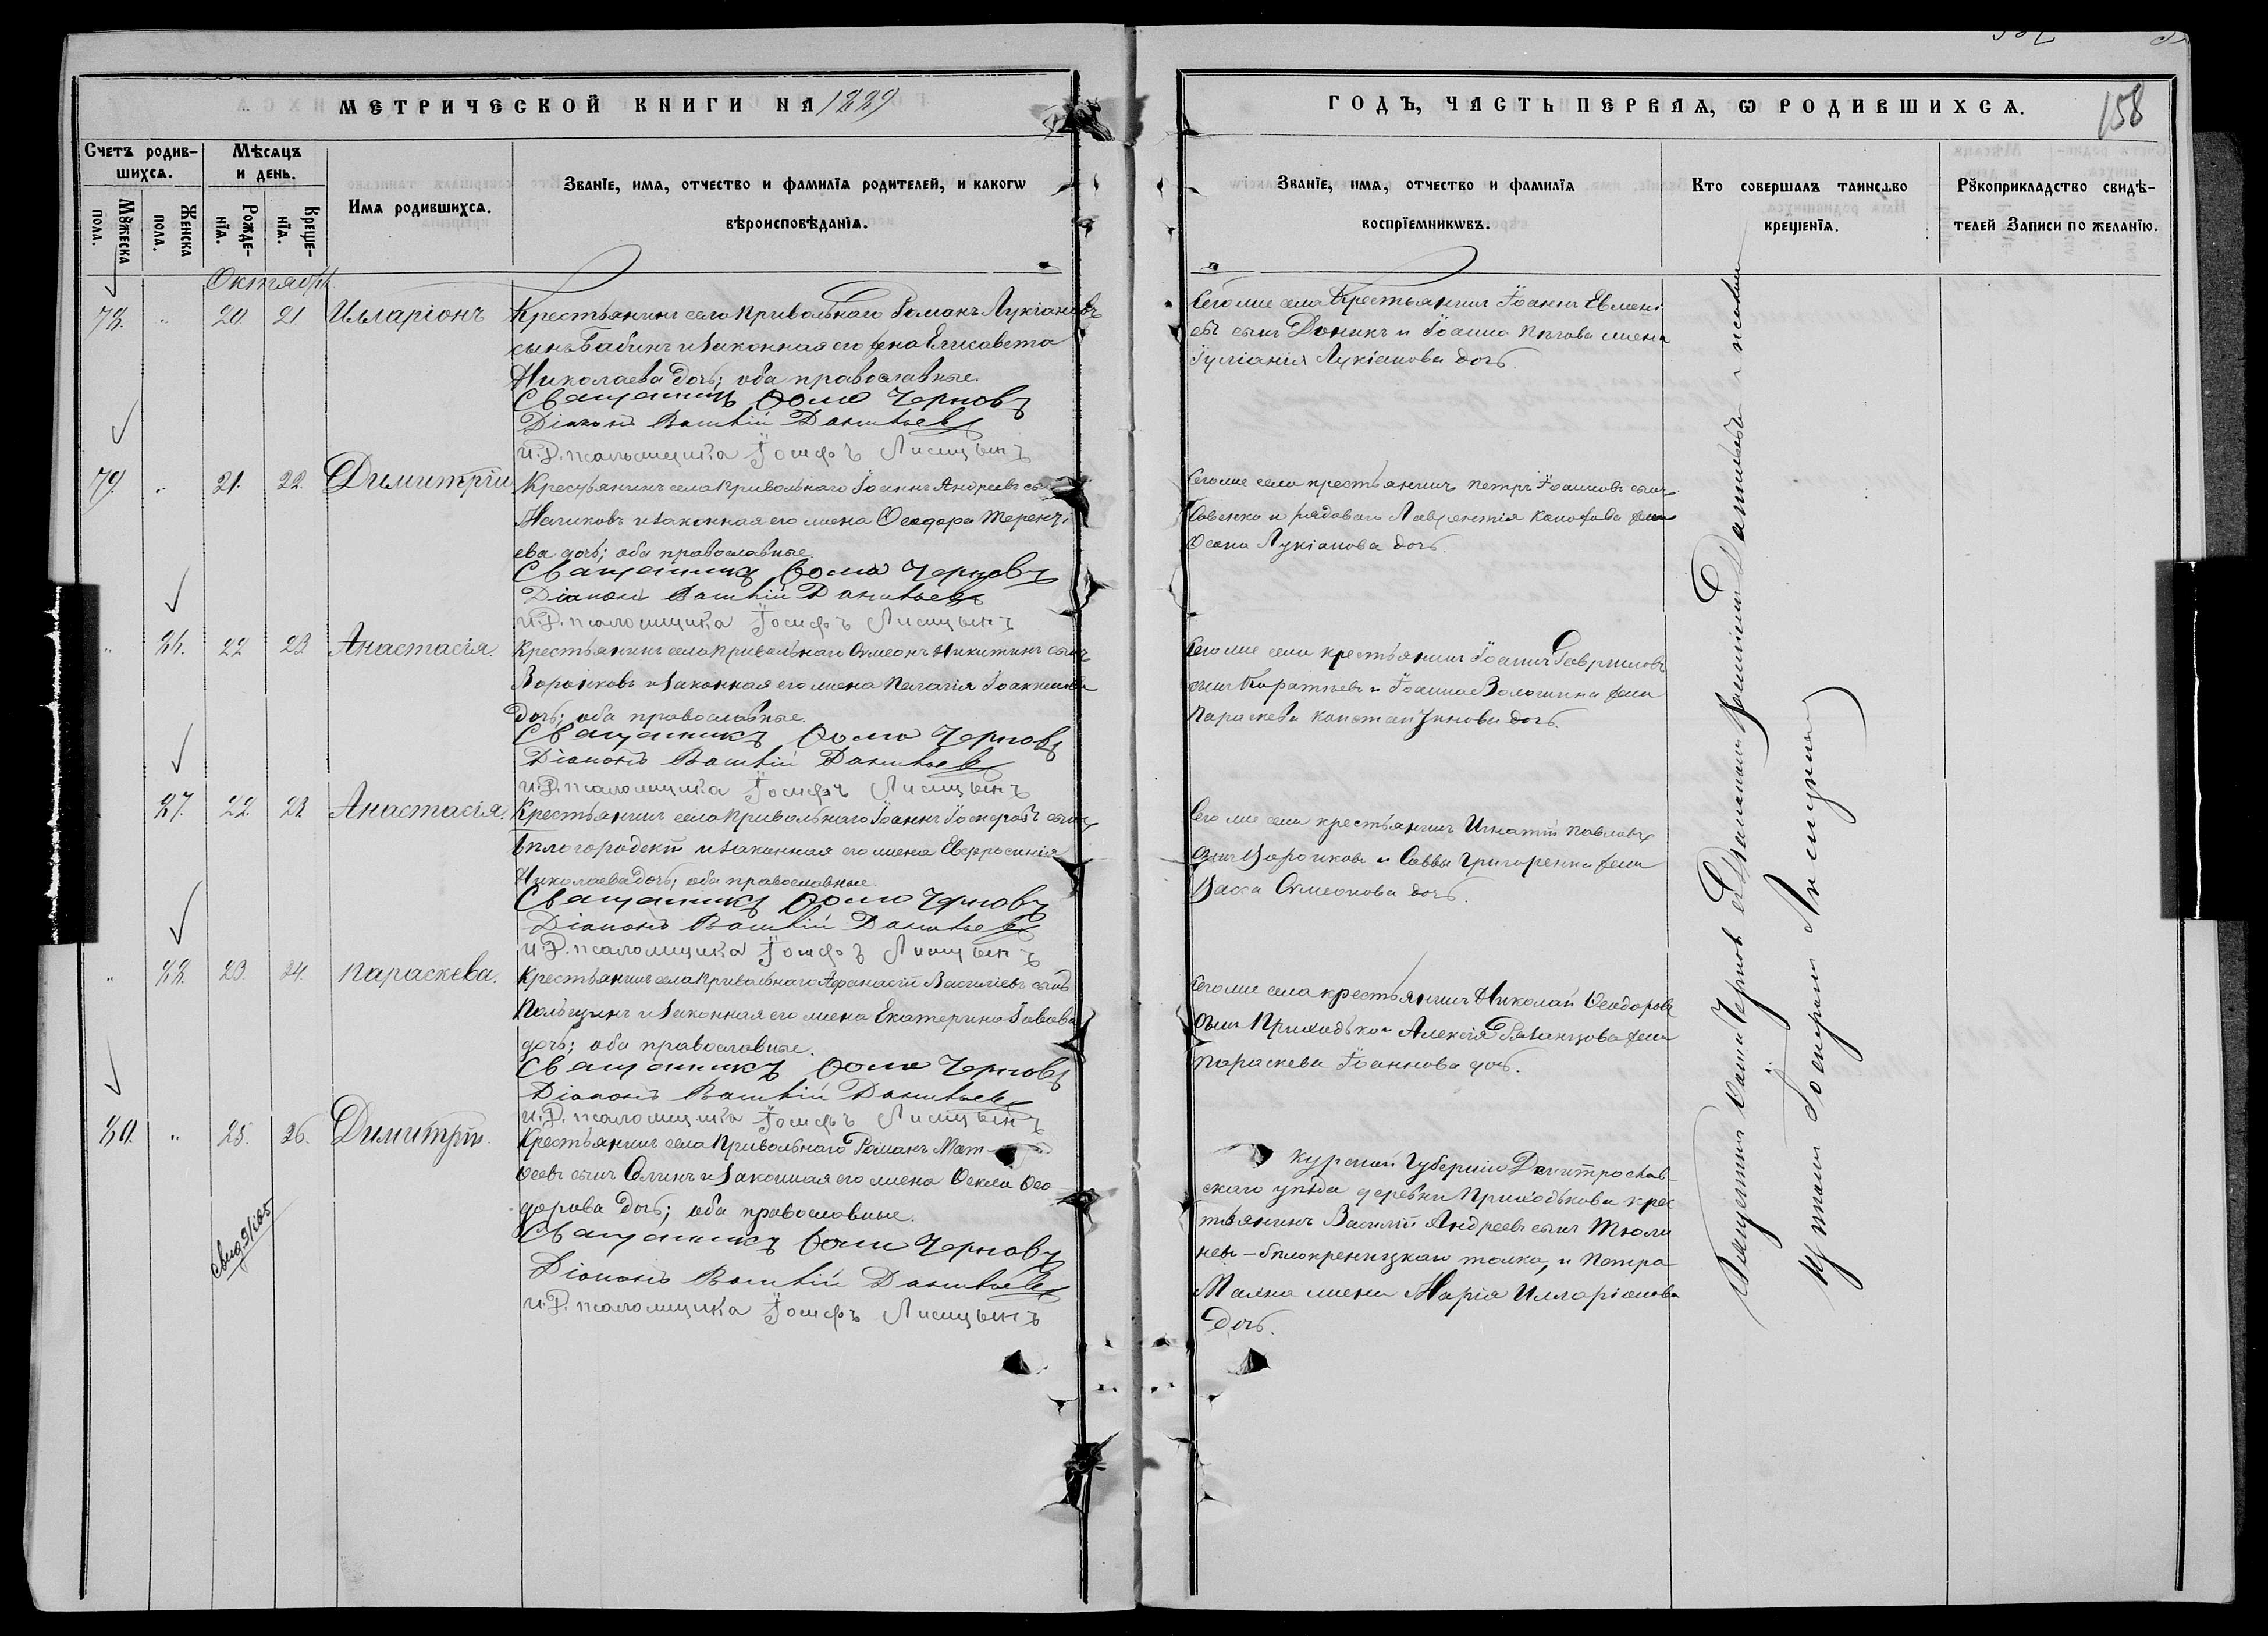 МЕТРИЧЕСКОЙ КНИГИ НА 1889
ГОДЪ, ЧАСТЬ ПЕРВАЯ, Ѡ РОДИВШИХСѦ.
158
Счетъ родившихсѧ.
Мꙋжеска пола.
Женска пола.
Мѣсѧцъ и день.
Рожденїѧ.
Крещенїѧ.
Имѧ родившихсѧ.
Званїе, имѧ, отчество и фамилїѧ родителей, и какогѡ
вѣроисповѣданїѧ.
Званїе, имѧ, отчество и фамилїѧ
воспрїемникѡвъ.
Кто совершалъ таинство
крещенїѧ.
Рꙋкоприкладство свидѣ-
телей Записи по желанїю.
Октября
78. " 20. 21. Илларіонъ
Крестьянинъ села Привольнаго Романъ Лукіановъ
сынъ Бабинъ и законная его жена Елисавета
Николаева дочь; оба православные.
Священникъ Ѳома Черновъ
Діаконъ Данильевъ
и. д. псаломщика Іосифъ Лисицынъ
Сего же села Крестьянинъ Іоаннъ Евмені-
евъ сынъ и Іоанна жена
Іуліанія Лукіанова дочь.
79. " 21. 22. Димитрій
Крестьянинъ села Привольнаго Іоаннъ Андреевъ сынъ
и законная его жена Ѳеодора Терентi-
ева дочь; оба православные.
Священникъ Ѳома Черновъ
Діаконъ Данильевъ
и. д. псаломщика Іосифъ Лисицынъ
Сего же села крестьянинъ Петръ Іоанновъ сынъ
Савенко и рядоваго Лаврентія жена
Лукіанова дочь.
" 86. 22 23 Анастасія.
Крестьянинъ села Привольнаго Симеонъ Никитинъ сынъ
Воронковъ и законная его жена Пелагія Іоакимова
дочь; оба православные.
Священникъ Ѳома Черновъ
Діаконъ Данильевъ
и. д. псаломщика Іосифъ Лисицынъ
Сего же села крестьянинъ Іоаннъ Гавриловъ
сынъ и Іоанна Волошина жена
Параскева Константинова дочь.
87. 22. 23. Анастасія.
Крестьянинъ села Привольнаго Іоаннъ Іосифовъ сынъ
Бѣлогородскій и законная его жена Евфросинія
Николаева дочь; оба православные.
Священникъ Ѳома Черновъ
Діаконъ Данильевъ
и. д. псаломщика Іосифъ Лисицынъ
Сего же села крестьянинъ Игнатій Павловъ
сынъ Воронковъ и Саввы Григоренка жена
Васса Симеонова дочь.
" 88. 23 24. Параскева.
Крестьянинъ села Привольнаго Афанасій Василіевъ сынъ
и законная его жена Екатерина
дочь; оба православные.
Священникъ Ѳома Черновъ
Діаконъ Данильевъ
и. д. псаломщика Іосифъ Лисицынъ
Сего же села крестьянинъ Николай Ѳеодоровъ
сынъ Приходько и Алексія Рязанцова жена
Параскева Іоаннова дочь.
80. " 25. 26. Димитрій.
Крестьянинъ села Привольнаго Романъ Мат-
ѳеевъ сынъ и законная его жена Ѳекла Ѳео-
дорова дочь; оба православные.
Священникъ Ѳома Черновъ
Діаконъ Данильевъ
и. д. псаломщика Іосифъ Лисицынъ
Курской Губерніи Дмитрослав-
скаго уѣзда деревни Приходькова крес-
тьянинъ Василій Андреевъ сынъ Тюли-
невъ – бѣлокреницкаго толка, и Петра
жена Марія Илларіонова
дочь.
Священникъ Ѳома Черновъ съ Діакономъ Данильевымъ и псалом-
щикомъ Іосифомъ Лисицынымъ